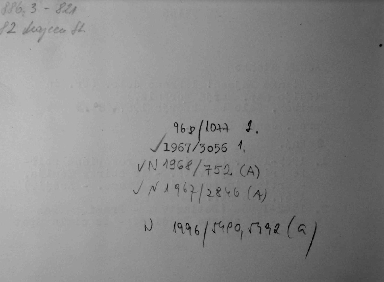 886,3 - 821
82 Majcen 82
968/1077 2.
✓1967/3056 1.
✓N 1968/752 (A)
✓N 1967/2846 (A)
N 1996/5490,5492 (a)